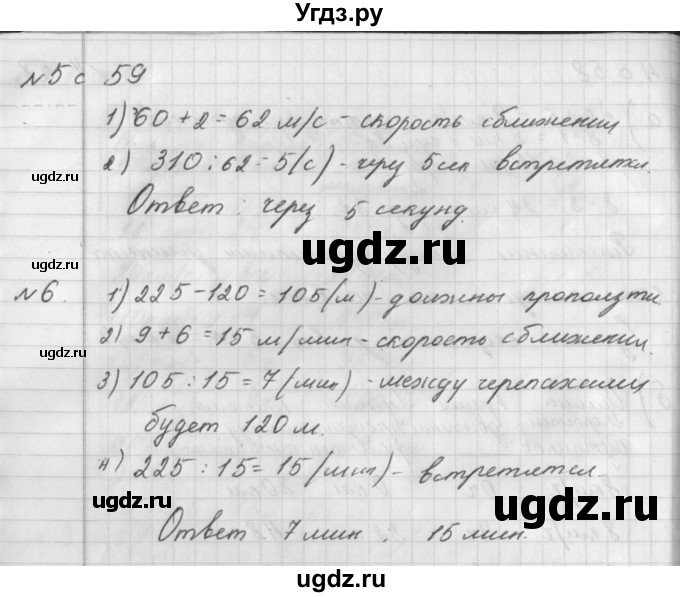 Угдз.ру
№5 с 59
1) 60 + 2 = 62 м/с - скорость сближения
2) 310 : 62 = 5 (с) - через 5 сек встретятся.
Ответ : через 5 секунд.
№6. 1) 225 - 120 = 105 (м) - должны проползти.
2) 9 + 6 = 15 м/мин - скорость сближения.
3) 105 : 15 = 7 (мин) - между черепахами
будет 120 м.
4) 225 : 15 = 15 (мин) - встретятся.
Ответ 7 мин . 15 мин.
ugdz.ru
ugdz.ru
ugdz.ru
ugdz.ru
ugdz.ru
ugdz.ru
ugdz.ru